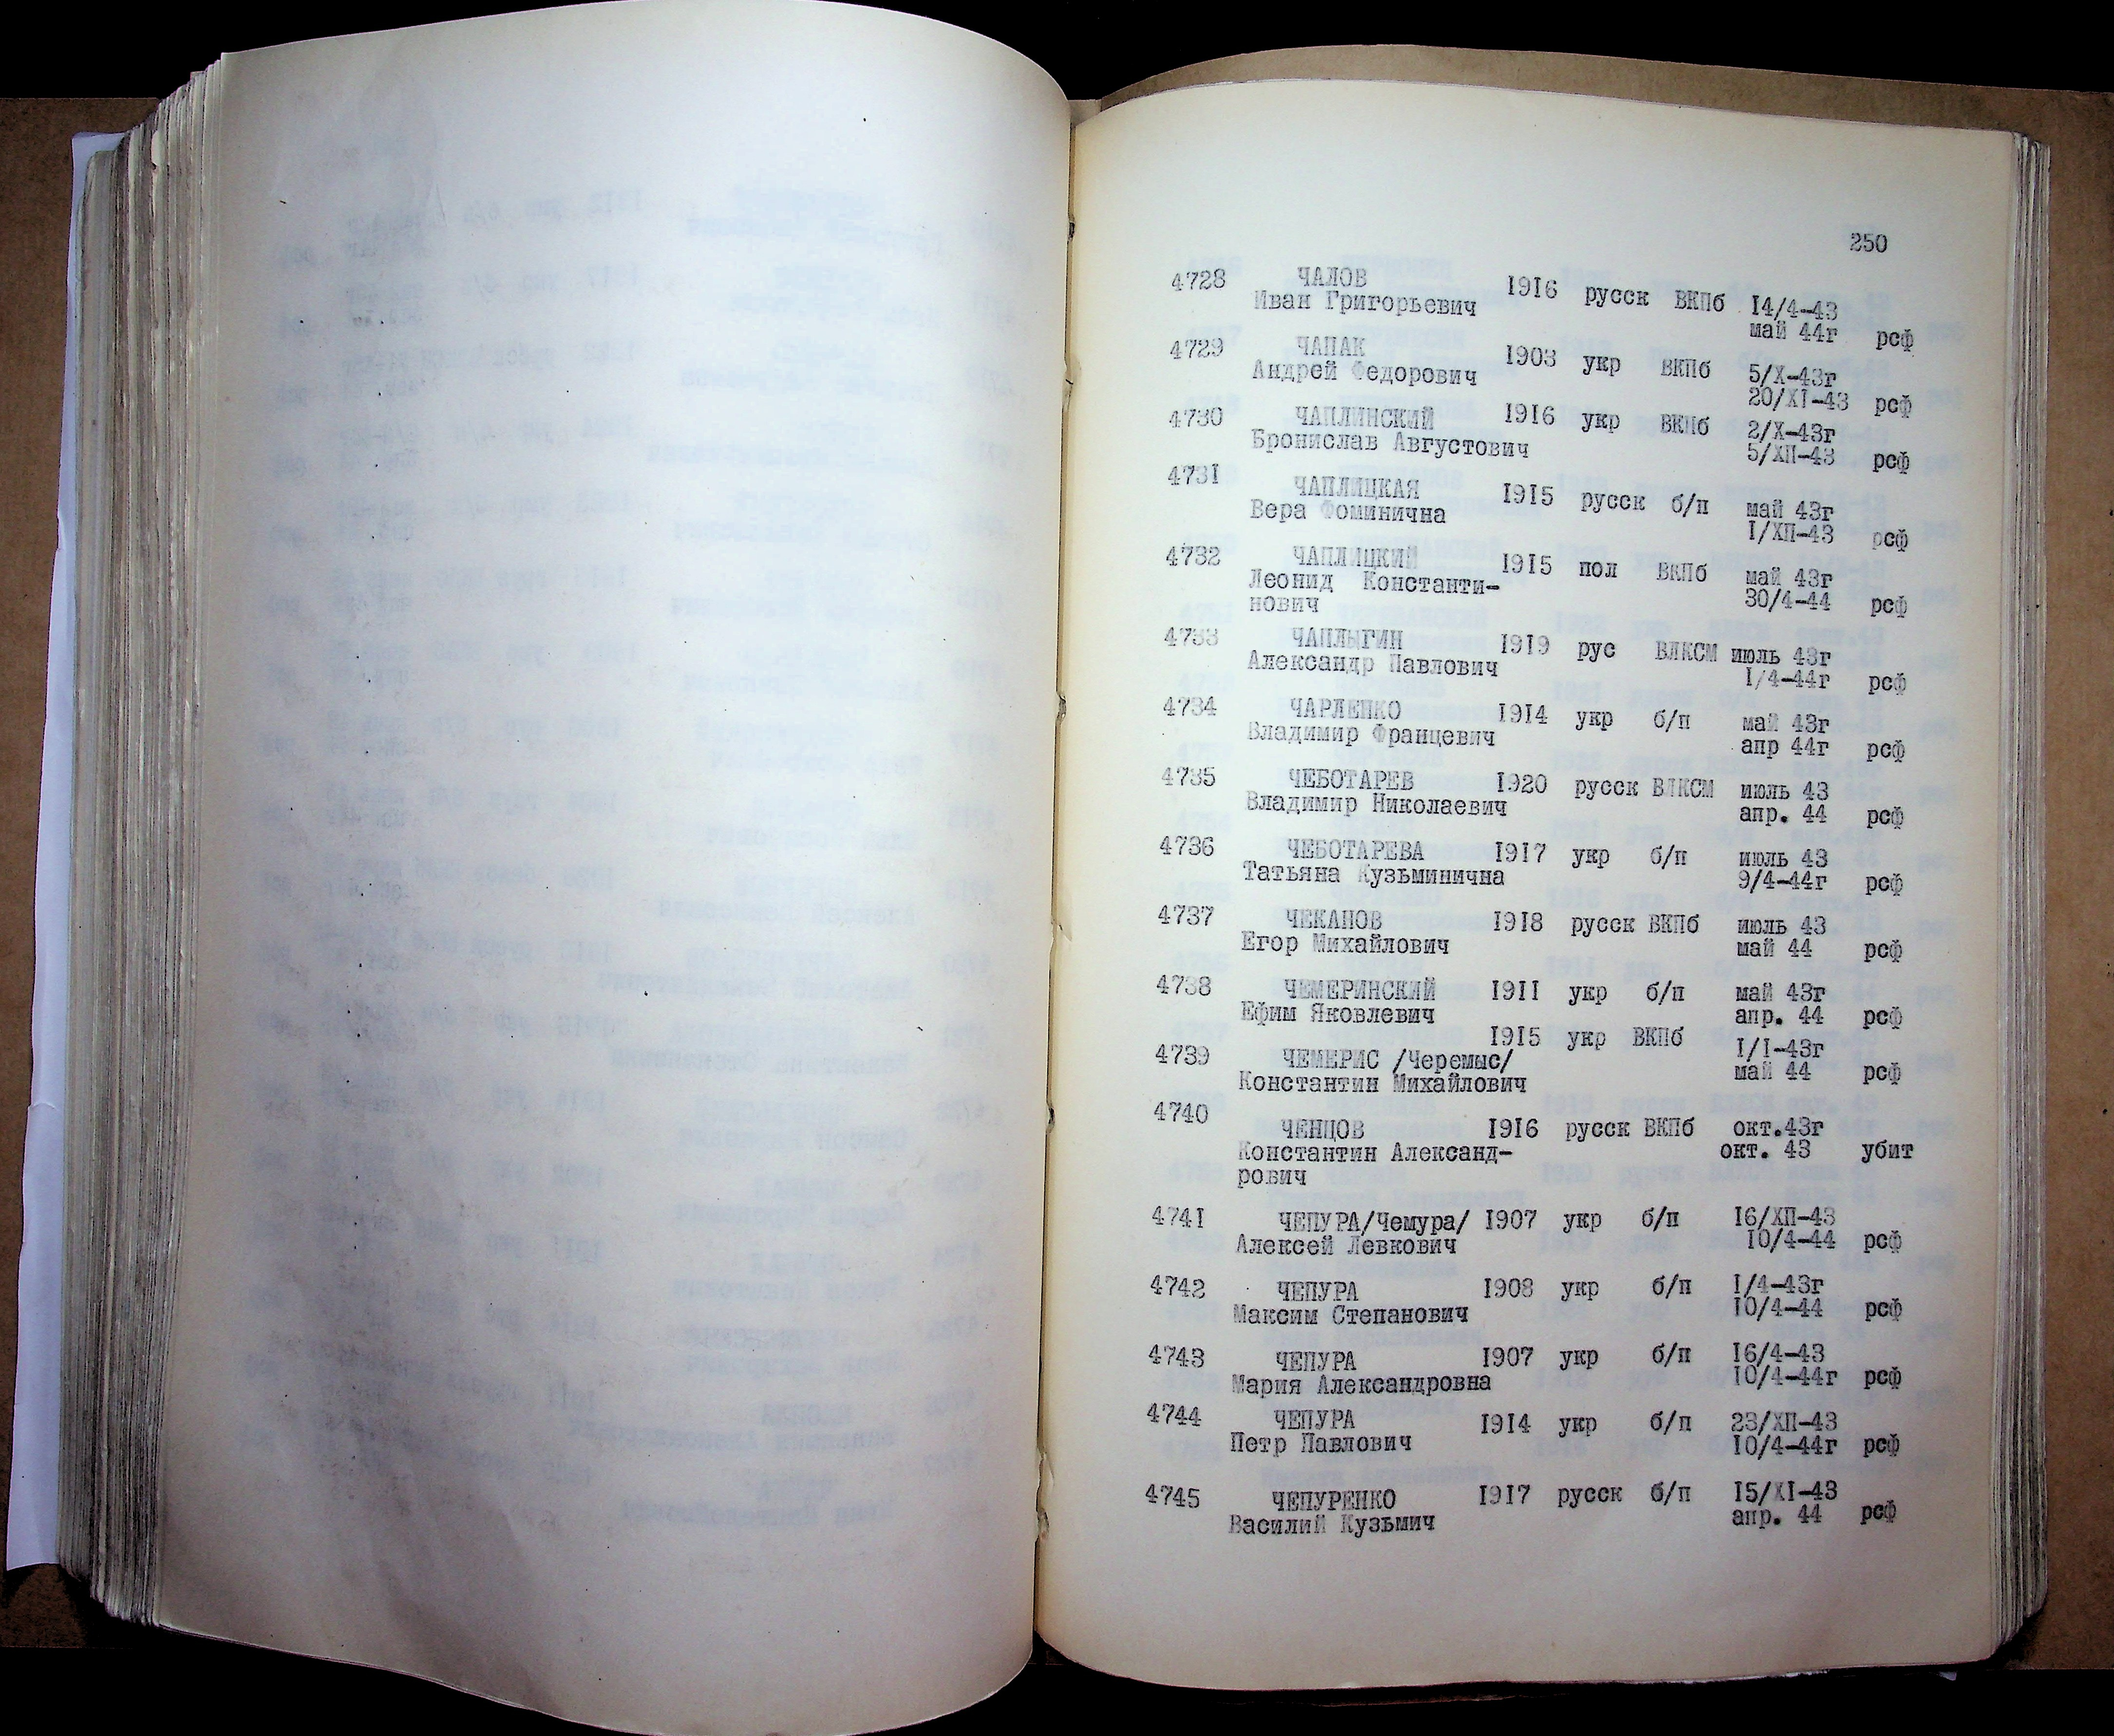 250
4728 ЧАЛОВ 1916 русск ВКПб 14/4-43
Иван Григорьевич май 44г рсф
4729 ЧАПАК 1903 укр ВКПб 5/X-43г
Андрей Федорович 20/XI-43 рсф
4730 ЧАПЛИНСКИЙ 1916 укр ВКПб 2/X-43г
Бронислав Августович 5/ХП-43 рсф
4731 ЧАПЛИЦКАЯ 1915 русск б/п май 43г
Вера Фоминична I/ХП-43 рсф
4732 ЧАПЛИЦКИЙ 1915 пол ВКПб май 43г
Леонид Константи- 30/4-44 рсф
нович
4733 ЧАПЛЫГИН 1919 рус ВЛКСМ июль 43г
Александр Павлович I/4-44г рсф
4734 ЧАРЛЕПКО 1914 укр б/п май 43г
Владимир Францевич апр 44г рсф
4735 ЧЕБОТАРЕВ 1920 русск ВЛКСМ июль 43
Владимир Николаевич апр. 44 рсф
4736 ЧЕБОТАРЕВА 1917 укр б/п июль 43
Татьяна Кузьминична 9/4-44г рсф
4737 ЧЕКАНОВ 1918 русск ВКПб июль 43
Егор Михайлович май 44 рсф
4738 ЧЕМЕРИНСКИЙ 1911 укр б/п май 43г
Ефим Яковлевич апр. 44 рсф
1915 укр ВКПб I/I-43г
4739 ЧЕМЕРИС /Черемыс/ май 44 рсф
Константин Михайлович
4740 ЧЕНЦОВ 1916 русск ВКПб окт.43г
Константин Александ- окт. 43 убит
рович
4741 ЧЕПУРА/Чемура/ 1907 укр б/п 16/ХП-43
Алексей Левкович 10/4-44 рсф
4742 ЧЕПУРА 1908 укр б/п I/4-43г
Максим Степанович 10/4-44 рсф
4743 ЧЕПУРА 1907 укр б/п 16/4-43
Мария Александровна 10/4-44г рсф
4744 ЧЕПУРА 1914 укр б/п 23/ХП-43
Петр Павлович 10/4-44г рсф
4745 ЧЕПУРЕНКО 1917 русск б/п 15/XI-43
Василий Кузьмич апр. 44 рсф